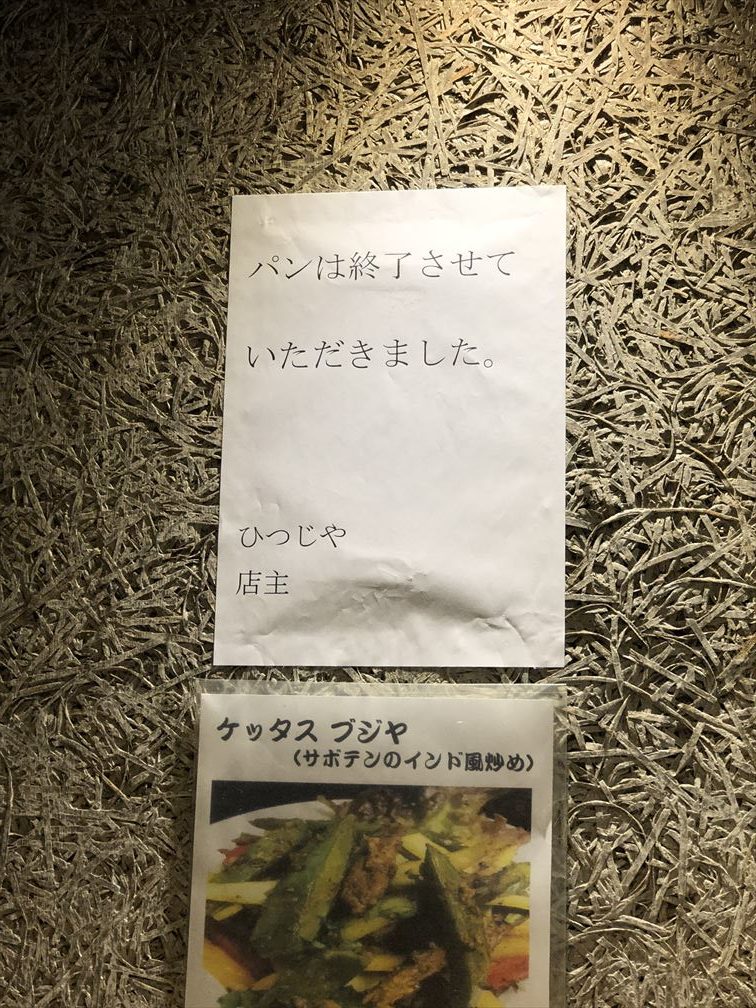 パンは終了させて
いただきました。
ひつじや
店主
ケッタス ブジヤ
(サボテンのインド風炒め)